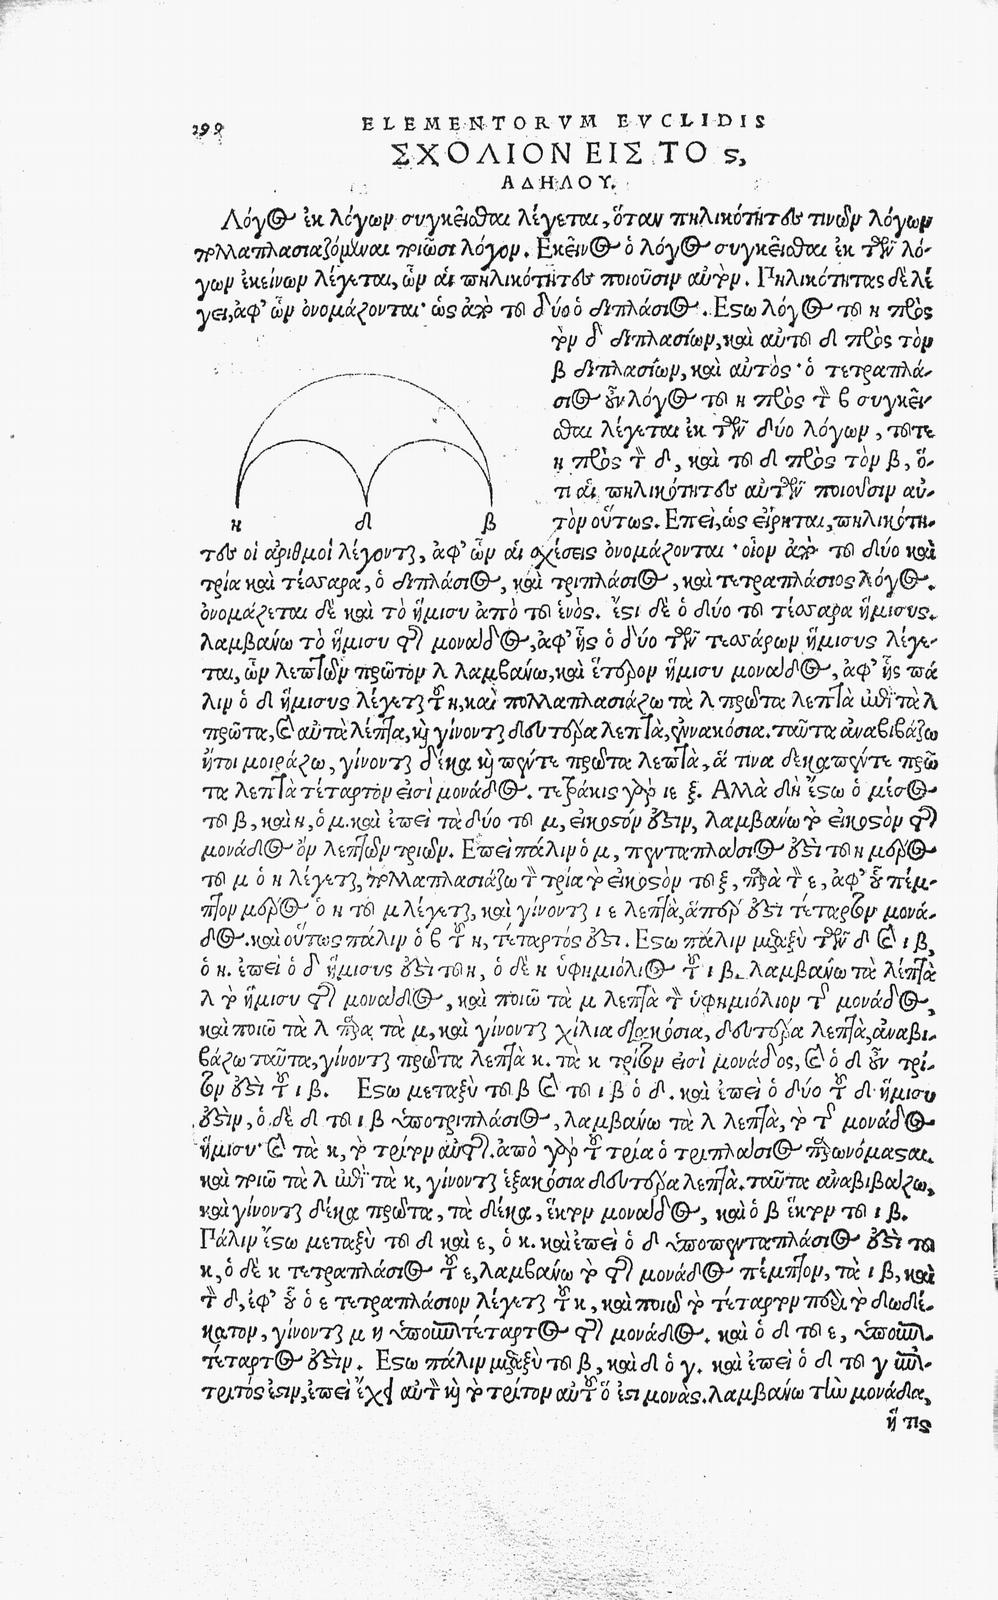 199
ELEMENTORVM EVCLIDIS
ΣΧΟΛΙΟΝ ΕΙΣ ΤΟ ς,
ΑΔΗΛΟΥ.
Λόγος ἐκ λόγων συγκεῖσθαι λέγεται, ὅταν πηλικότητες τινῶν λόγων
πολλαπλασιαζόμεναι ποιῶσι λόγον. Εκεῖνος ὁ λόγος συγκεῖσθαι ἐκ τῶν λό-
γων ἐκείνων λέγεται, ὧν αἱ πηλικότητες ποιοῦσιν αὐτὸν. Πηλικότητας δὲ λέ
γει, ἀφ' ὧν ὀνομάζονται· ὡς ἀπὸ τοῦ δύο ὁ διπλάσιος. Εστω λόγος τοῦ η πρὸς
τὸν δ διπλασίων, καὶ αὐτοῦ δ πρὸς τὸν
β διπλασίων, καὶ αὐτὸς· ὁ τετραπλά-
σιος οὖν λόγος τοῦ η πρὸς τὸν β συγκεῖ-
σθαι λέγεται ἐκ τῶν δύο λόγων, τοῦτε
η πρὸς τὸν δ, καὶ τοῦ δ πρὸς τὸν β, ὅ-
τι αἱ πηλικότητες αὐτῶν ποιοῦσιν αὐ-
τὸν οὕτως. Επεὶ, ὡς εἴρηται, πηλικότη-
η δ β
τες οἱ ἀριθμοὶ λέγονται, ἀφ' ὧν αἱ σχέσεις ὀνομάζονται· οἷον ἀπὸ τοῦ δύο καὶ
τρία καὶ τέσσαρα, ὁ διπλάσιος, καὶ τριπλάσιος, καὶ τετραπλάσιος λόγος.
ὀνομάζεται δὲ καὶ τὸ ἥμισυ ἀπὸ τοῦ ἑνός. ἔστι δὲ ὁ δύο τοῦ τέσσαρα ἥμισυς.
λαμβάνω τὸ ἥμισυ τῆς μονάδος, ἀφ' ἧς ὁ δύο τῶν τεσσάρων ἥμισυς λέγε-
ται, ὧν λεπτῶν πρῶτον λ λαμβάνω, καὶ ἕτερον ἥμισυ μονάδος, ἀφ' ἧς πά
λιν ὁ δ ἥμισυς λέγεται τοῦ η, καὶ πολλαπλασιάζω τὰ λ πρῶτα λεπτὰ ἐπὶ τὰ λ
πρῶτα, καὶ αὐτὰ λέπτα, καὶ γίνονται δεύτερα λεπτὰ, ἐννακόσια. ταῦτα ἀναβιβάζω
ἤτοι μοιράζω, γίνονται δέκα καὶ πέντε πρῶτα λεπτὰ, ἅ τινα δεκαπέντε πρῶ
τα λεπτὰ τέταρτον εἰσὶ μονάδος. τετράκις γὰρ ιε ξ. Αλλὰ δὴ ἔστω ὁ μέσος
τοῦ β, καὶ η, ὁ μ. καὶ ἐπεὶ τὰ δύο τοῦ μ, εἰκοστόν ἐστιν, λαμβάνω τὸ εἰκοστὸν τῆς
μονάδος ὃν λεπτῶν τριῶν. Επεὶ πάλιν ὁ μ, πενταπλασίος ἐστὶ τοῦ η μέρος
τοῦ μ ὁ η λέγεται, πολλαπλασιάζω τὸν τρία τὸ εἰκοστὸν τοῦ ξ, παρὰ τὸν ε, ἀφ' οὗ πέμ-
πτον μέρος ὁ η τοῦ μ λέγεται, καὶ γίνονται ι ε λεπτὰ, ἅπερ ἐστὶ τέταρτον μονά-
δος. καὶ οὕτως πάλιν ὁ β τοῦ η, τέταρτός ἐστι. Εστω πάλιν μεταξὺ τῶν δ καὶ ι β,
ὁ η. ἐπεὶ ὁ δ ἥμισυς ἐστὶ τοῦ η, ὁ δὲ η ὑφημιόλιος τοῦ ι β. λαμβάνω τὰ λέπτὰ
λ τὸ ἥμισυ τῆς μονάδος, καὶ ποιῶ τὰ μ λεπτὰ τὸν ὑφημιόλιον τῆς μονάδος,
καὶ ποιῶ τὰ λ παρὰ τὰ μ, καὶ γίνονται χίλια διακόσια, δεύτερα λεπτὰ, ἀναβι-
βάζω ταῦτα, γίνονται πρῶτα λεπτὰ κ. τὰ κ τρίτον εἰσὶ μονάδος, καὶ ὁ δ οὖν τρί-
τον ἐστὶ τοῦ ι β. Εστω μεταξὺ τοῦ β καὶ τοῦ ι β ὁ δ. καὶ ἐπεὶ ὁ δύο τοῦ δ ἥμισυ
ἐστὶν, ὁ δὲ δ τοῦ ι β ὑποτριπλάσιος, λαμβάνω τὰ λ λεπτὰ, τὸ τῆς μονάδος
ἥμισυ· καὶ τὰ κ, τὸ τρίτον αὐτῆς. ἀπὸ γὰρ τοῦ τρία ὁ τριπλασίος παρωνόμασαι.
καὶ ποιῶ τὰ λ ἐπὶ τὰ κ, γίνονται ἑξακόσια δεύτερα λεπτὰ. ταῦτα ἀναβιβάζω,
καὶ γίνονται δέκα πρῶτα, τὰ δέκα, ἕκτον μονάδος, καὶ ὁ β ἕκτον τοῦ ι β.
Πάλιν ἔστω μεταξὺ τοῦ δ καὶ ε, ὁ κ. καὶ ἐπεὶ ὁ δ ὑποπενταπλάσιος ἐστὶ τοῦ
κ, ὁ δὲ κ τετραπλάσιος τοῦ ε, λαμβάνω τὸ τῆς μονάδος πέμπτον, τὰ ι β, καὶ
τὸν δ, ἐφ' οὗ ὁ ε τετραπλάσιον λέγεται τοῦ κ, καὶ ποιῶ τὸ τέταρτον παρὰ τὸ δωδέ-
κατον, γίνονται μ η ὑποεπιτέταρτος τῆς μονάδος. καὶ ὁ δ τοῦ ε, ὑποεπι-
τέταρτος ἐστὶν. Εστω πάλιν μεταξὺ τοῦ β, καὶ δ ὁ γ. καὶ ἐπεὶ ὁ δ τοῦ γ ἐπί-
τριτός ἐστιν, ἐπεὶ ἔχει αὐτὸν καὶ τὸ τρίτον αὐτοῦ ὅ ἐστι μονὰς. λαμβάνω τὴν μονάδα,
ἥ τις